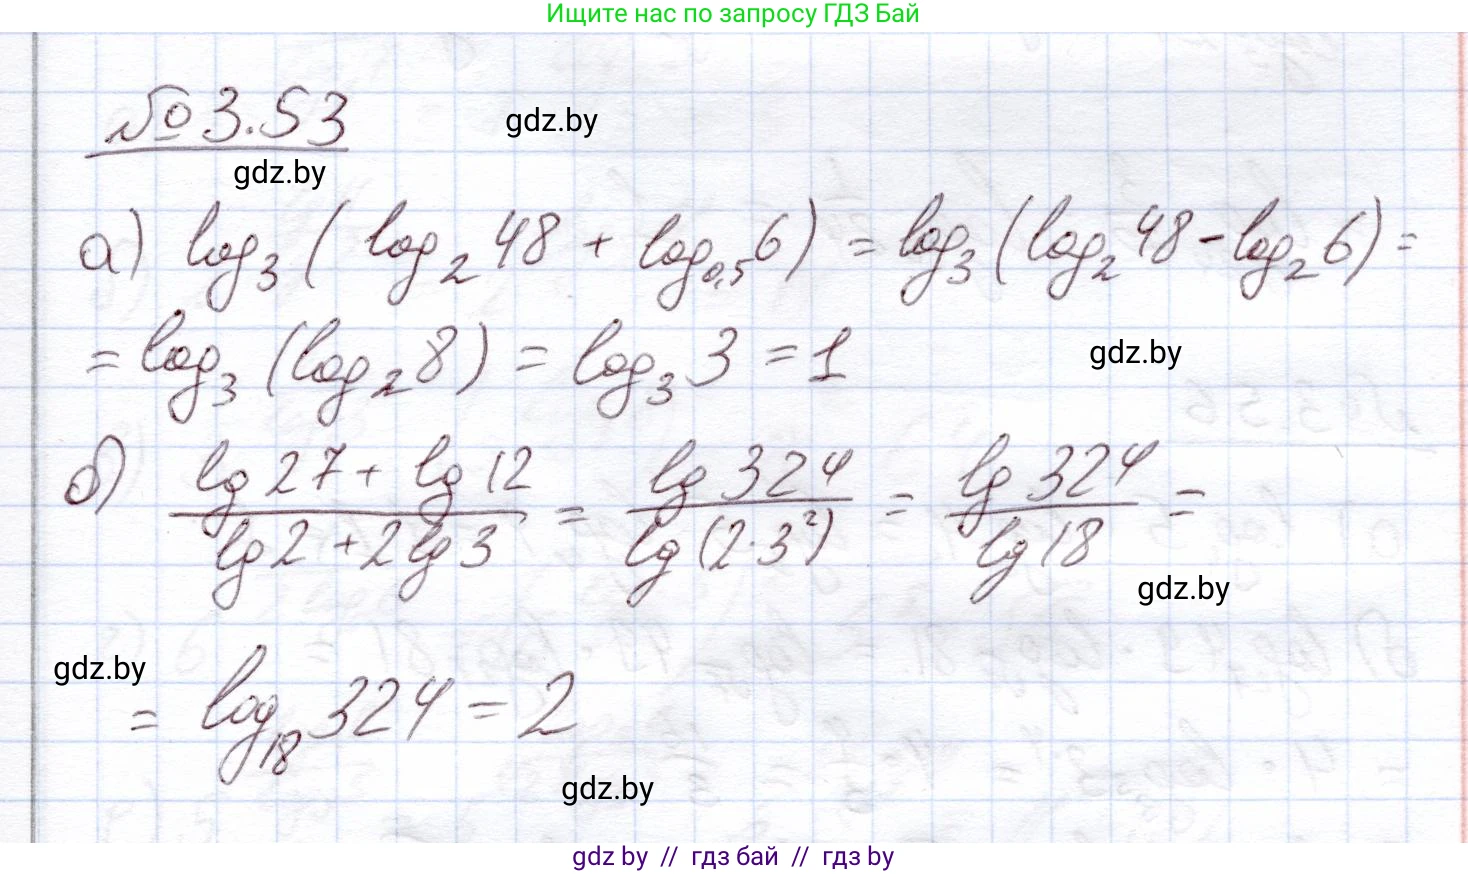 Ищите нас по запросу ГДЗ Бай
№ 3.53
gdz.by
gdz.by
а) log₃( log₂48 + log₀,₅6) = log₃(log₂48 - log₂6) =
= log₃(log₂8) = log₃3 = 1
gdz.by
б) (lg 27 + lg 12)/(lg 2 + 2 lg 3) = (lg 324)/(lg (2·3²)) = (lg 324)/(lg 18) =
gdz.by
gdz.by
= log₁₈324 = 2
gdz.by
gdz by // гдз бай // гдз by